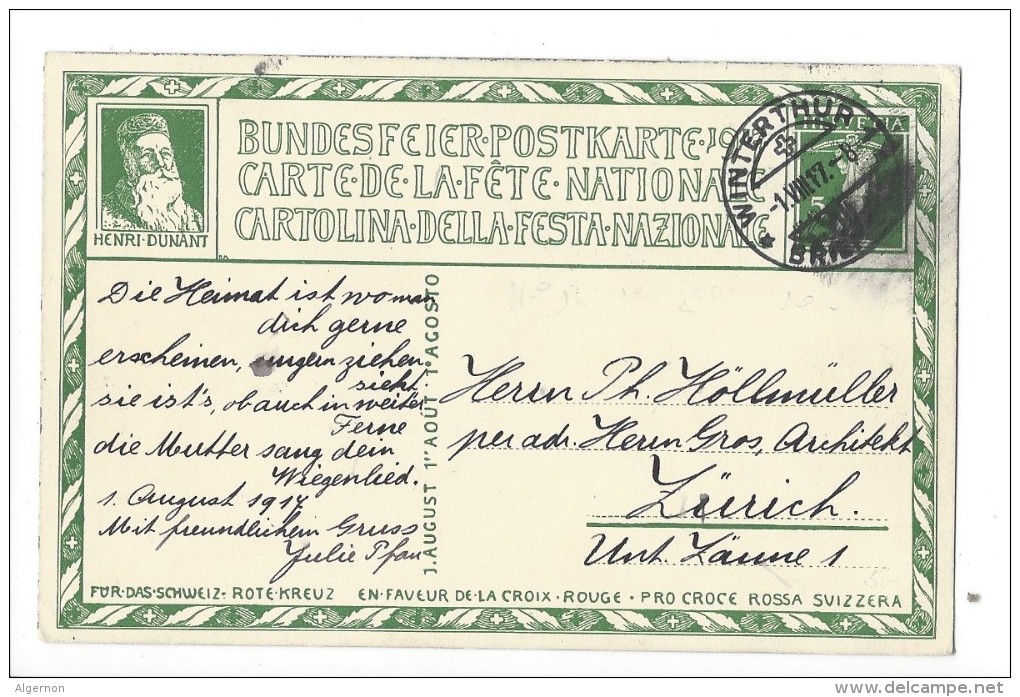 HENRI·DUNANT
BUNDESFEIER·POSTKARTE·19
CARTE·DE·LA·FÊTE·NATIONALE
CARTOLINA·DELLA·FESTA·NAZIONALE
WINTERTHUR 1
-1.VIII.17.-8
BRIEF
5
Die Heimat ist wo man
dich gerne
erscheinen, ungern ziehen
sieht.
sie ist's, ob auch in weiter
Ferne
die Mutter sang dein
Wiegenlied.
1. August 1917
Mit freundlichem Gruss
Julie Pfau
1. AUGUST 1ER AOUT 1° AGOSTO
Herrn Ph. Höllmüller
per adr. Herrn Gros, Architekt
Zürich.
Unt. Zäune 1
FÜR·DAS·SCHWEIZ· ROTE·KREUZ EN·FAVEUR DE·LA CROIX·ROUGE· PRO CROCE ROSSA SVIZZERA
Algernon
www.delcampe.net